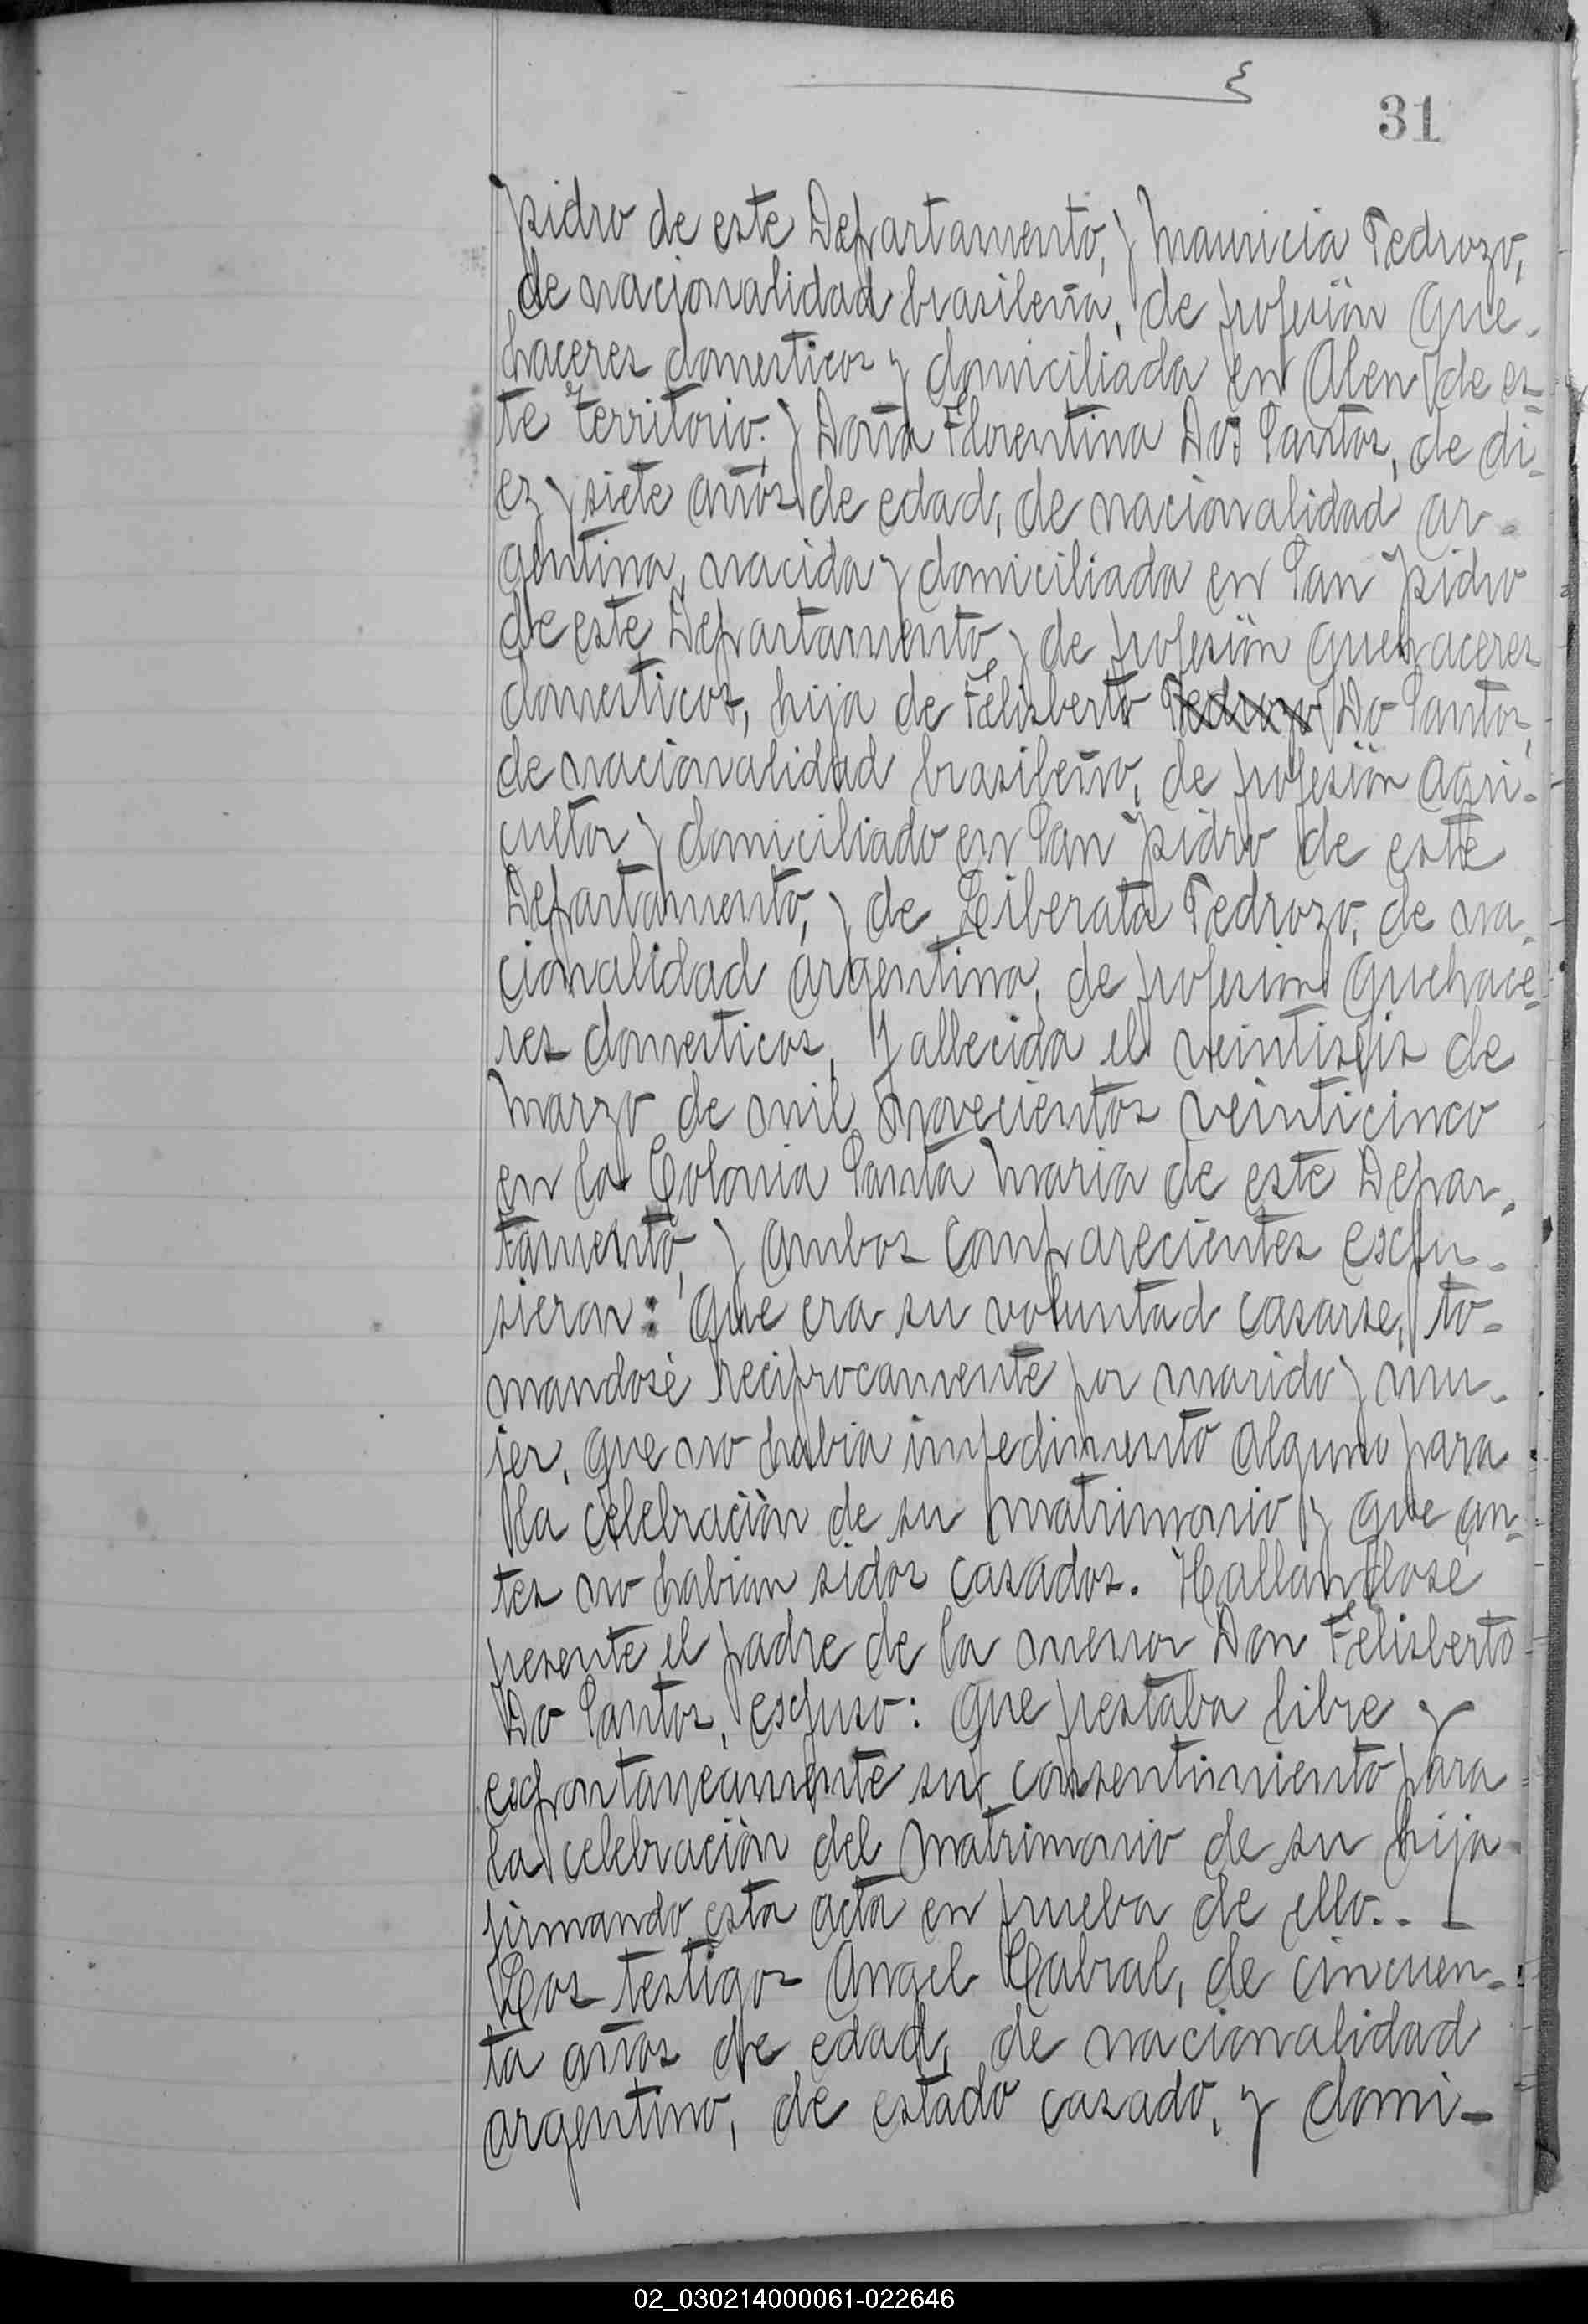 31
ysidro de este Departamento, y Mauricia Pedrozo,
de nacionalidad brasileña, de profesiön que-
haceres domesticos y domiciliada en Alen de es-
te territorio; y Doña Florentina Dos Santos, de di-
ez y siete años de edad, de nacionalidad ar-
gentina, nacida y domiciliada en San Ysidro
de este Departamento, y de profesiön quehaceres
domesticos, hija de Felisberto Pedrozo Do Santos,
de nacionalidad brasileño, de profesiön agri-
cultor y domiciliado en San Ysidro de este
Departamento, y de Liberata Pedrozo, de na-
cionalidad argentina, de profesion quehace-
res domesticos, fallecida el veintiseis de
Marzo de mil novecientos veinticinco
en la Colonia Santa Maria de este Depar-
tamento, y ambos comparecientes espu-
sieron: que era su voluntad casarse, to-
mandosé reciprocamente por marido y mu-
jer, que no habia impedimento alguno para
la celebraciòn de su matrimonio y que an-
tes no habian sidos casados. Hallandosé
presente el padre de la menor Don Felisberto
Do Santos, espuso: que prestaba libre y
espontaneamente su consentimiento para
la celebraciòn del matrimonio de su hija
firmando esta acta en prueba de ello..-
Los testigos Angel Cabral, de cincuen-
ta años de edad, de nacionalidad
argentino, de estado casado, y domi-
02_030214000061-022646